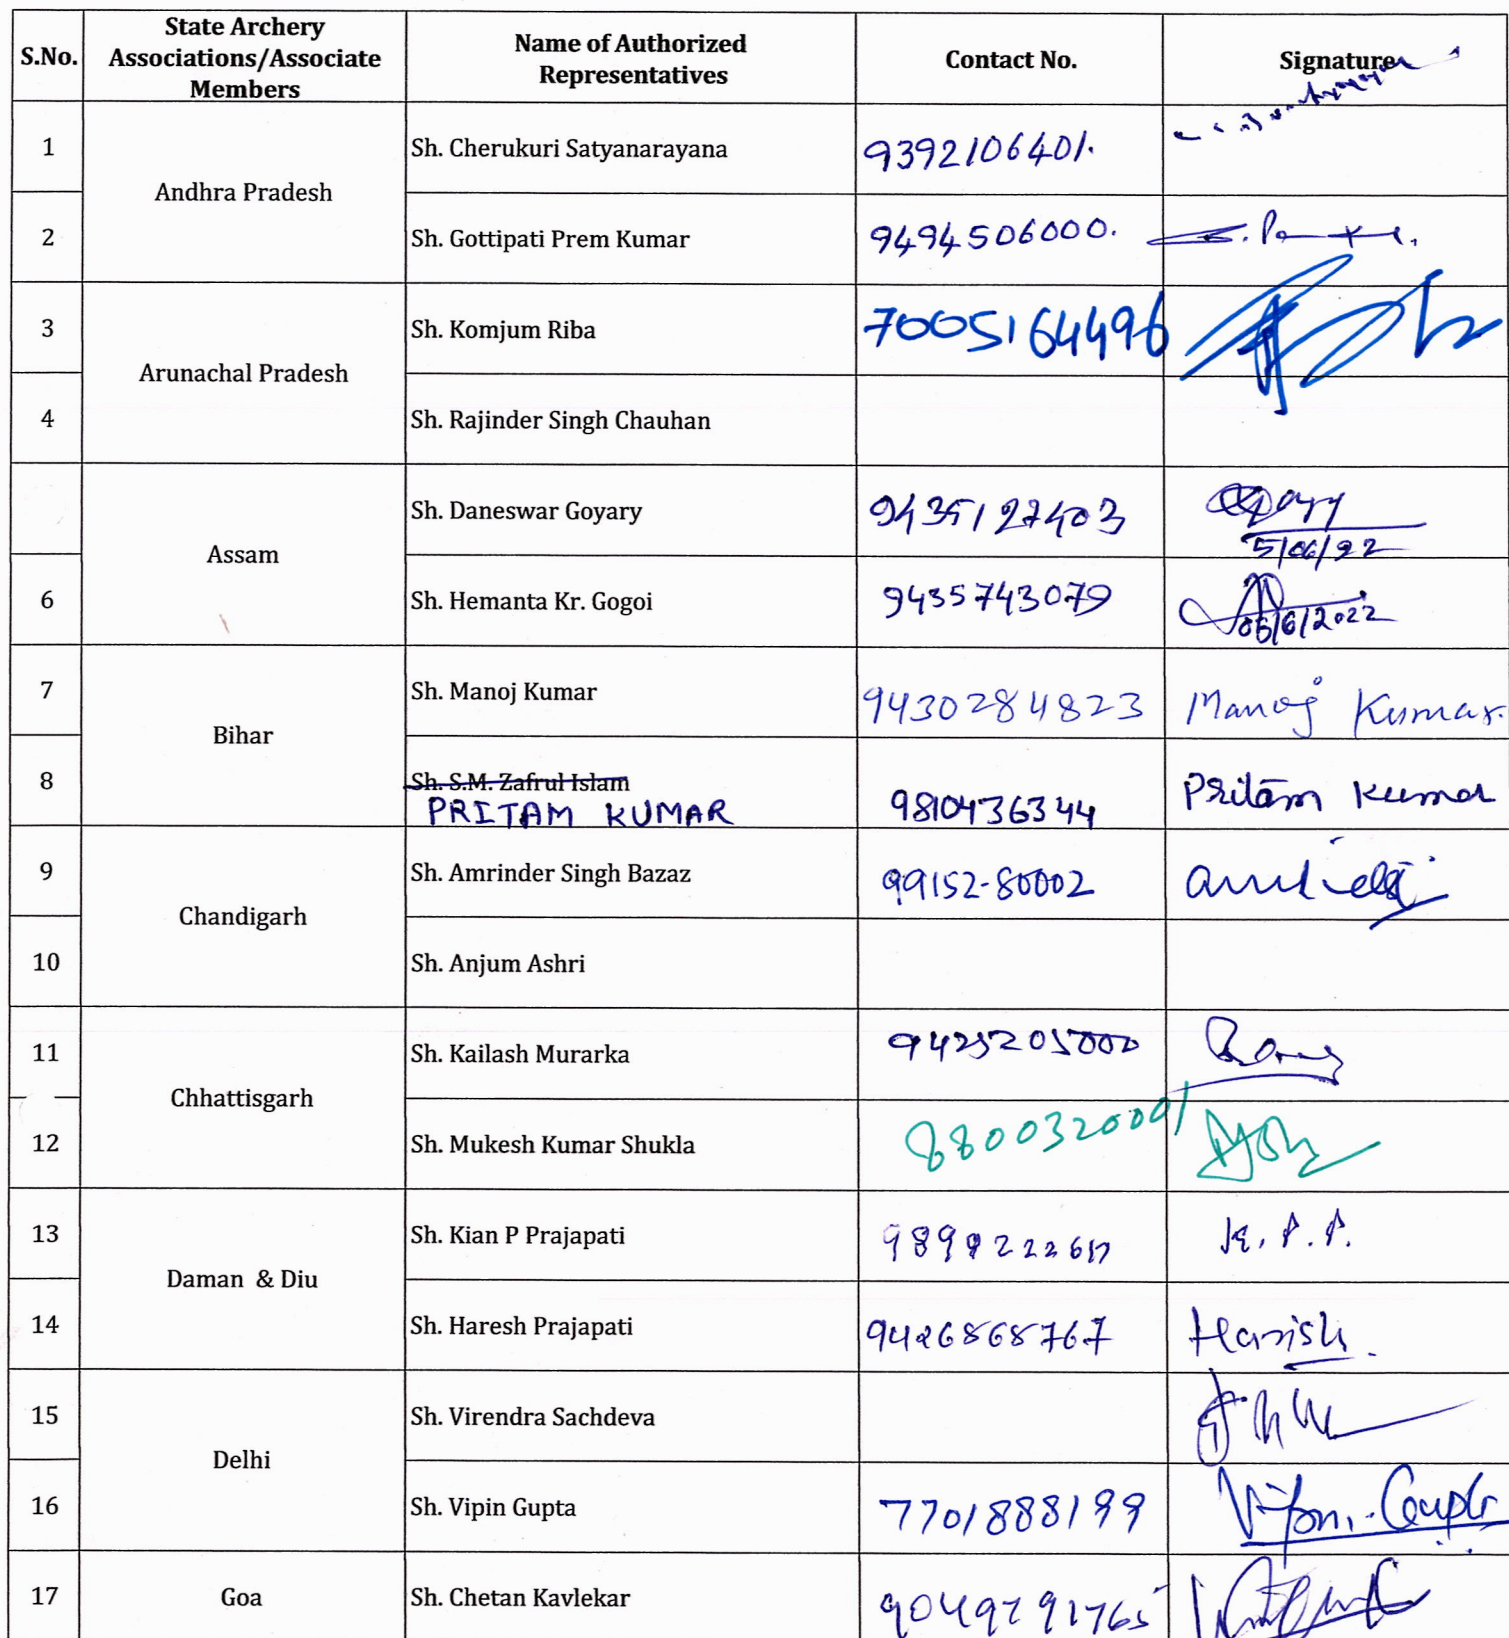 S.No. State Archery Associations/Associate Members Name of Authorized Representatives Contact No. Signature
1 Andhra Pradesh Sh. Cherukuri Satyanarayana 9392106401.
2 Sh. Gottipati Prem Kumar 9494506000.
3 Arunachal Pradesh Sh. Komjum Riba 7005164496
4 Sh. Rajinder Singh Chauhan
Assam Sh. Daneswar Goyary 9435127403
5/06/22
6 Sh. Hemanta Kr. Gogoi 9435743079
05/6/2022
7 Bihar Sh. Manoj Kumar 9430284823 Manoj Kumar.
8 Sh. S.M. Zafrul Islam
PRITAM KUMAR 9810436344 Pritam Kumar
9 Chandigarh Sh. Amrinder Singh Bazaz 99152-80002
10 Sh. Anjum Ashri
11 Chhattisgarh Sh. Kailash Murarka 9425205000
12 Sh. Mukesh Kumar Shukla 8800320001
13 Daman & Diu Sh. Kian P Prajapati K.P.P.
14 Sh. Haresh Prajapati 9426868767 Harish.
15 Delhi Sh. Virendra Sachdeva
16 Sh. Vipin Gupta 7701888199 Vipin Gupta
17 Goa Sh. Chetan Kavlekar